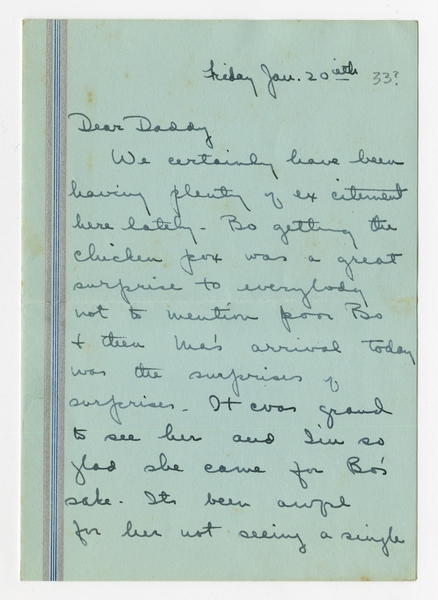 Friday Jan. 20ieth 33?
Dear Daddy
We certainly have been
having plenty of ex citement
here lately. Bo getting the
chicken pox was a great
surprise to everybody
not to mention poor Bo
& then Ma's arrival today
was the surprises of
surprises. It was grand
to see her and I'm so
glad she came for Bo's
sake. Its been awful
for her not seeing a single